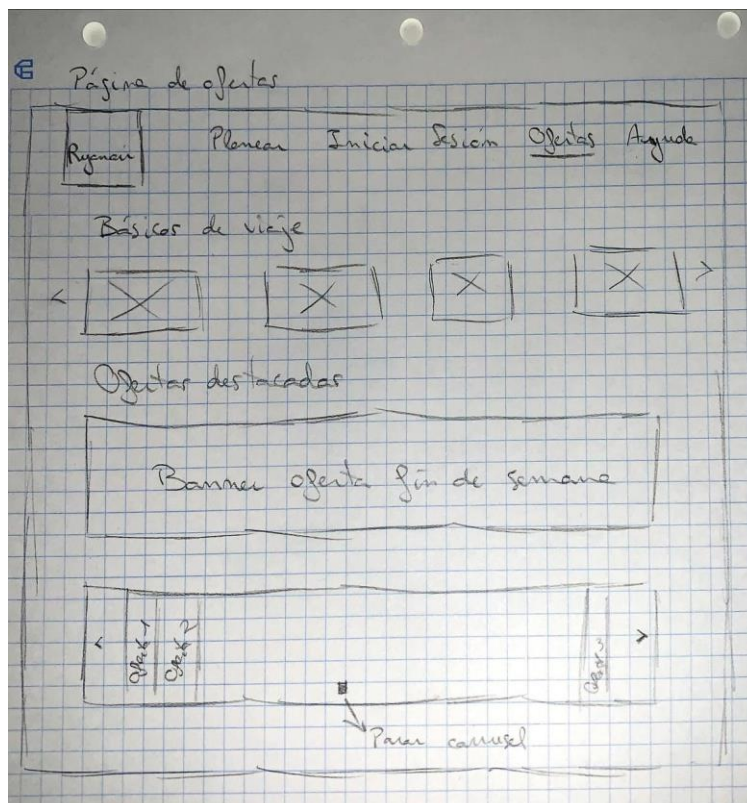 Página de ofertas
Ryanair Planear Iniciar Sesión Ofertas Ayuda
Básicos de viaje
< >
Ofertas destacadas
Banner oferta fin de semana
< Oferta 1 Oferta 2 Oferta 3 >
Parar carrusel